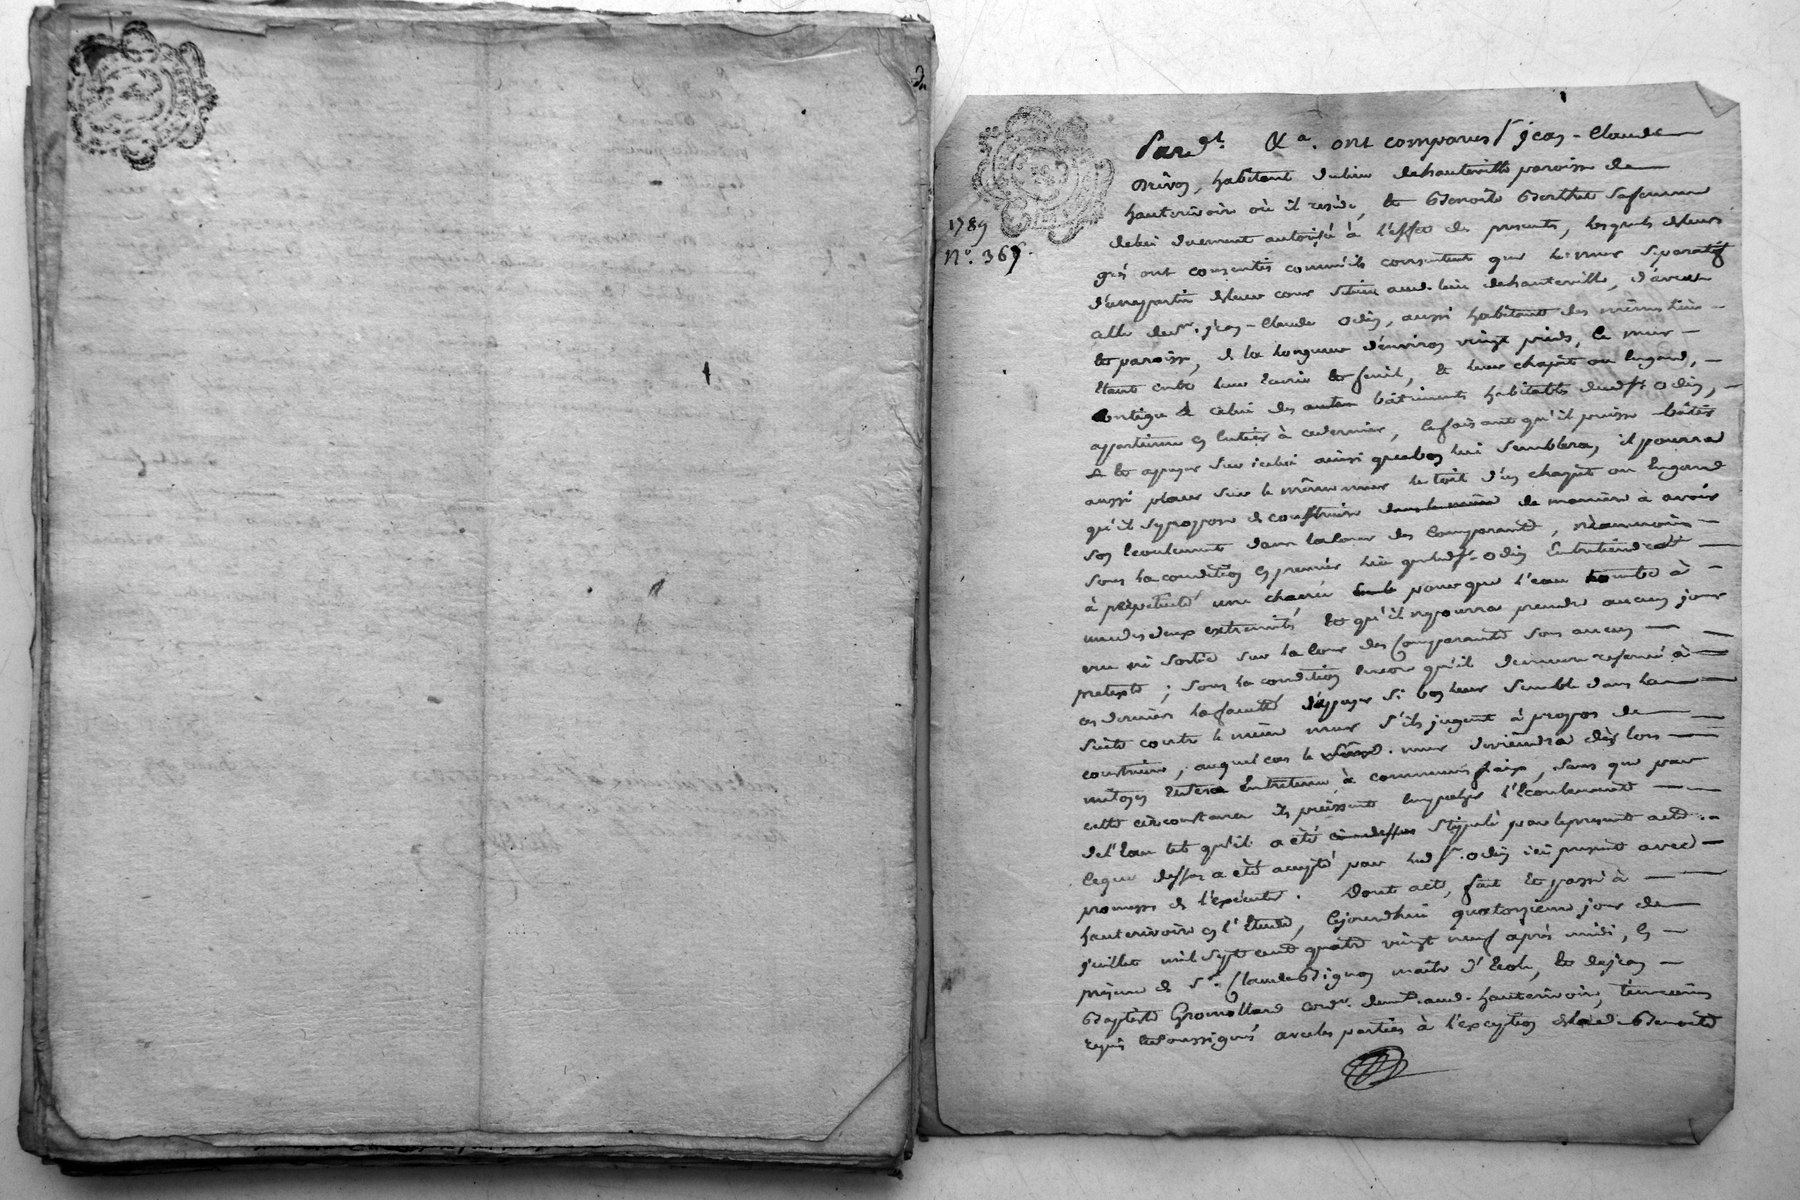 2
1789
N°. 369
Pard^t. &^a. ont comparus S^r jean-Claude
Brivon, habitant du lieu dehauteville paroisse de
hauterivoire où il reside, et Benoite Berthet Safemme
delui duement autorisée à l'effet des presents, lesquels deleurs
grés ont consentis comme ils consentent que le mur Séparatif
d'une partie deleur cour Située aud. lieu dehauteville, d'avec
celle deS^r. jean-Claude Odin, aussi habitant des mêmes lieu
et paroisse, de la longueur d'environ vingt pieds, le mur
étant entre leur Ecurie et fenil, et leur chapit ou hugard,
contigu à celui des autres bâtiments habitables dudS^r. Odin,
appartienne en Entier à cedernier, cefaisant qu'il puisse bâtir
& et appuyer Sur icelui ainsi quebon lui Semblera, il pourra
aussi placer Sur le même mur le toit d'un chapit ou hugard
qu'il Sepropose de construire de maniere à avoir
Son Ecoulement dans lacour des Comparants, néanmoins
Sous la condition en premier lieu queledS^r. Odin Entretiendra
à perpetuité une chanée pour que l'eau tombe à
une des deux extremités et qu'il nepourra prendre aucun jour
vue ni Sortie Sur la Cour des Comparants Sous aucun
pretexte; Sous la condition Encore qu'il demeure reservé à
ces derniers la faculté d'appuyer Si bon leur Semble dans la
Suite contre le même mur S'ils jugent à propos de
construire, auquel cas le mur deviendra dès lors
mitoyen et Sera Entretenu à communs fraix, Sans que pour
cette circonstance ils puissent Empecher l'Ecoulement
del'Eau tel qu'il a été cidessus Stipulé par lepresent acte.
Ceque dessus a été accepté par ledS^r. Odin ici present avec
promesse de l'executer. Dont acte, fait et passé à
hauterivoire en l'Etude, Cejourdhui quatorzieme jour de
juillet mil Sept cent quatre vingt neuf après midi, en
présence de S^r. Claude Bignon maître d'Ecole, et dejean
Baptiste Gromolland cord^r. dem^t. aud. hauterivoire, témoins
requis et Soussignés avecles parties à l'exception delad. Benoite